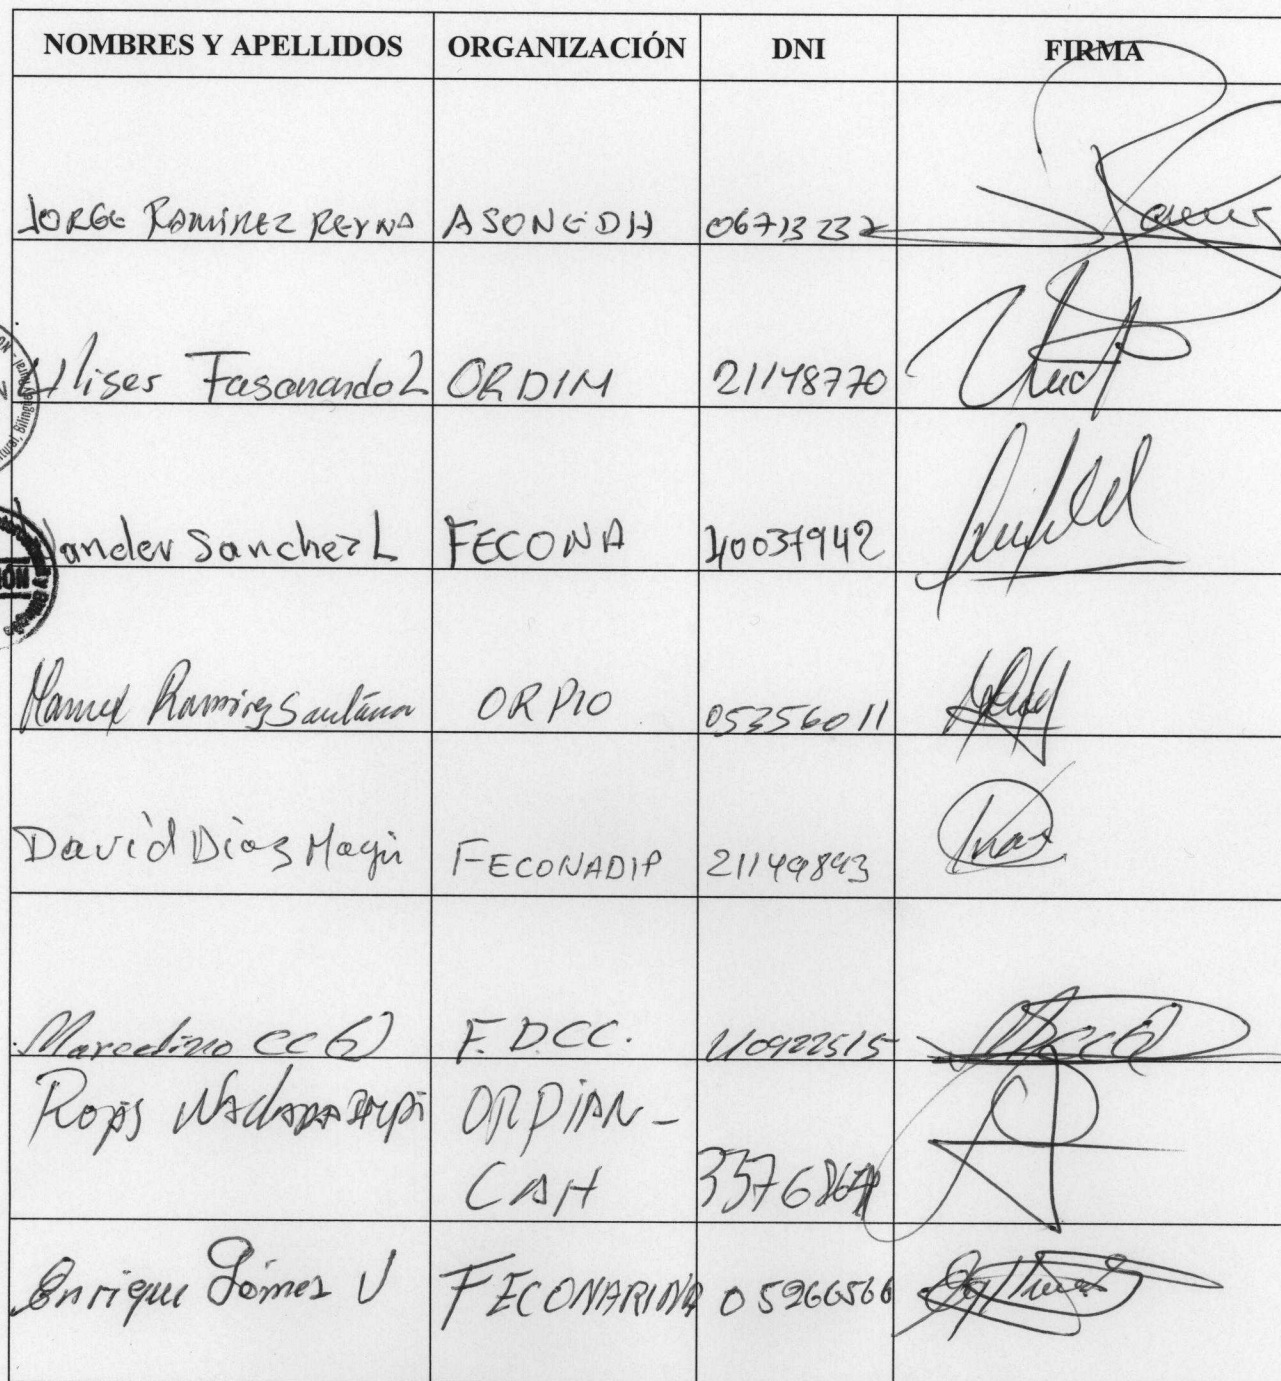 NOMBRES Y APELLIDOS ORGANIZACIÓN DNI FIRMA
JORGE RAMIREZ REYNA ASONEDH 06713232
Ulises Fasanando L ORDIM 21148770
ander Sanchez L FECONA 40037942
Manuel Ramirez Santana ORPIO 05356011
David Díaz Magin FECONADIP 21149893
Marcelino CC Q F. D. CC. 40922515
Rojas ORPIAN -
CAH
Enrique Gómez V FECONARINA 05266566